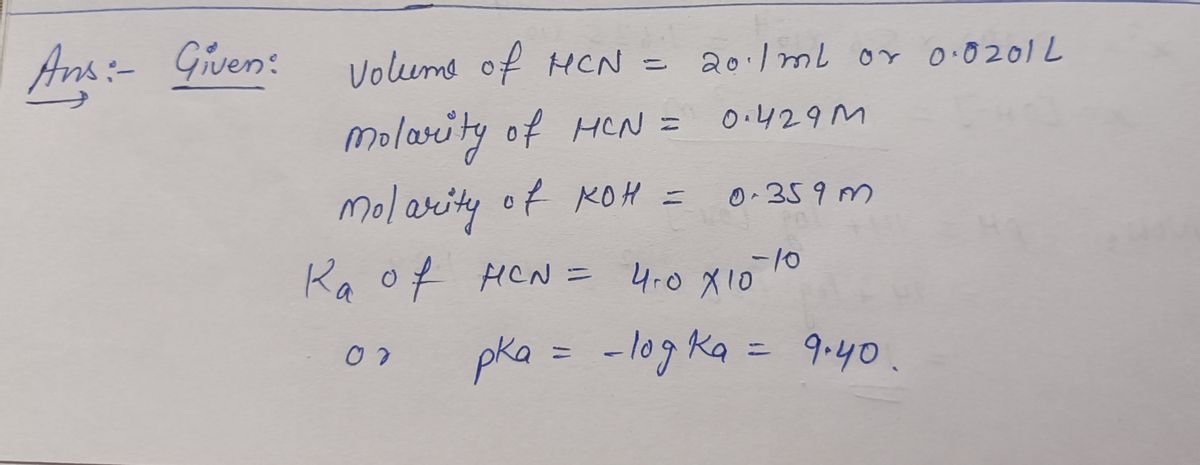 Ans:- Given: Volume of HCN = 20.1 mL or 0.0201 L
Molarity of HCN = 0.429 M
Molarity of KOH = 0.359 M
Ka of HCN = 4.0 X 10⁻¹⁰
or pKa = - log Ka = 9.40.